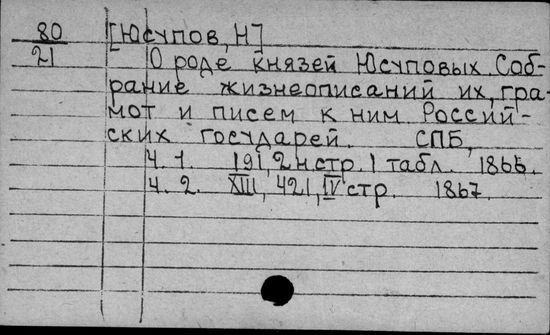 80 [Юсупов, Н]
21 О роде князей Юсуповых. Соб-
рание жизнеописаний их, гра-
мот и писем к ним Россий-
ских государей. СПБ,
Ч. 1. 191, 2 н стр. 1 табл. 1866.
Ч. 2. XIII, 421, IV стр. 1867.